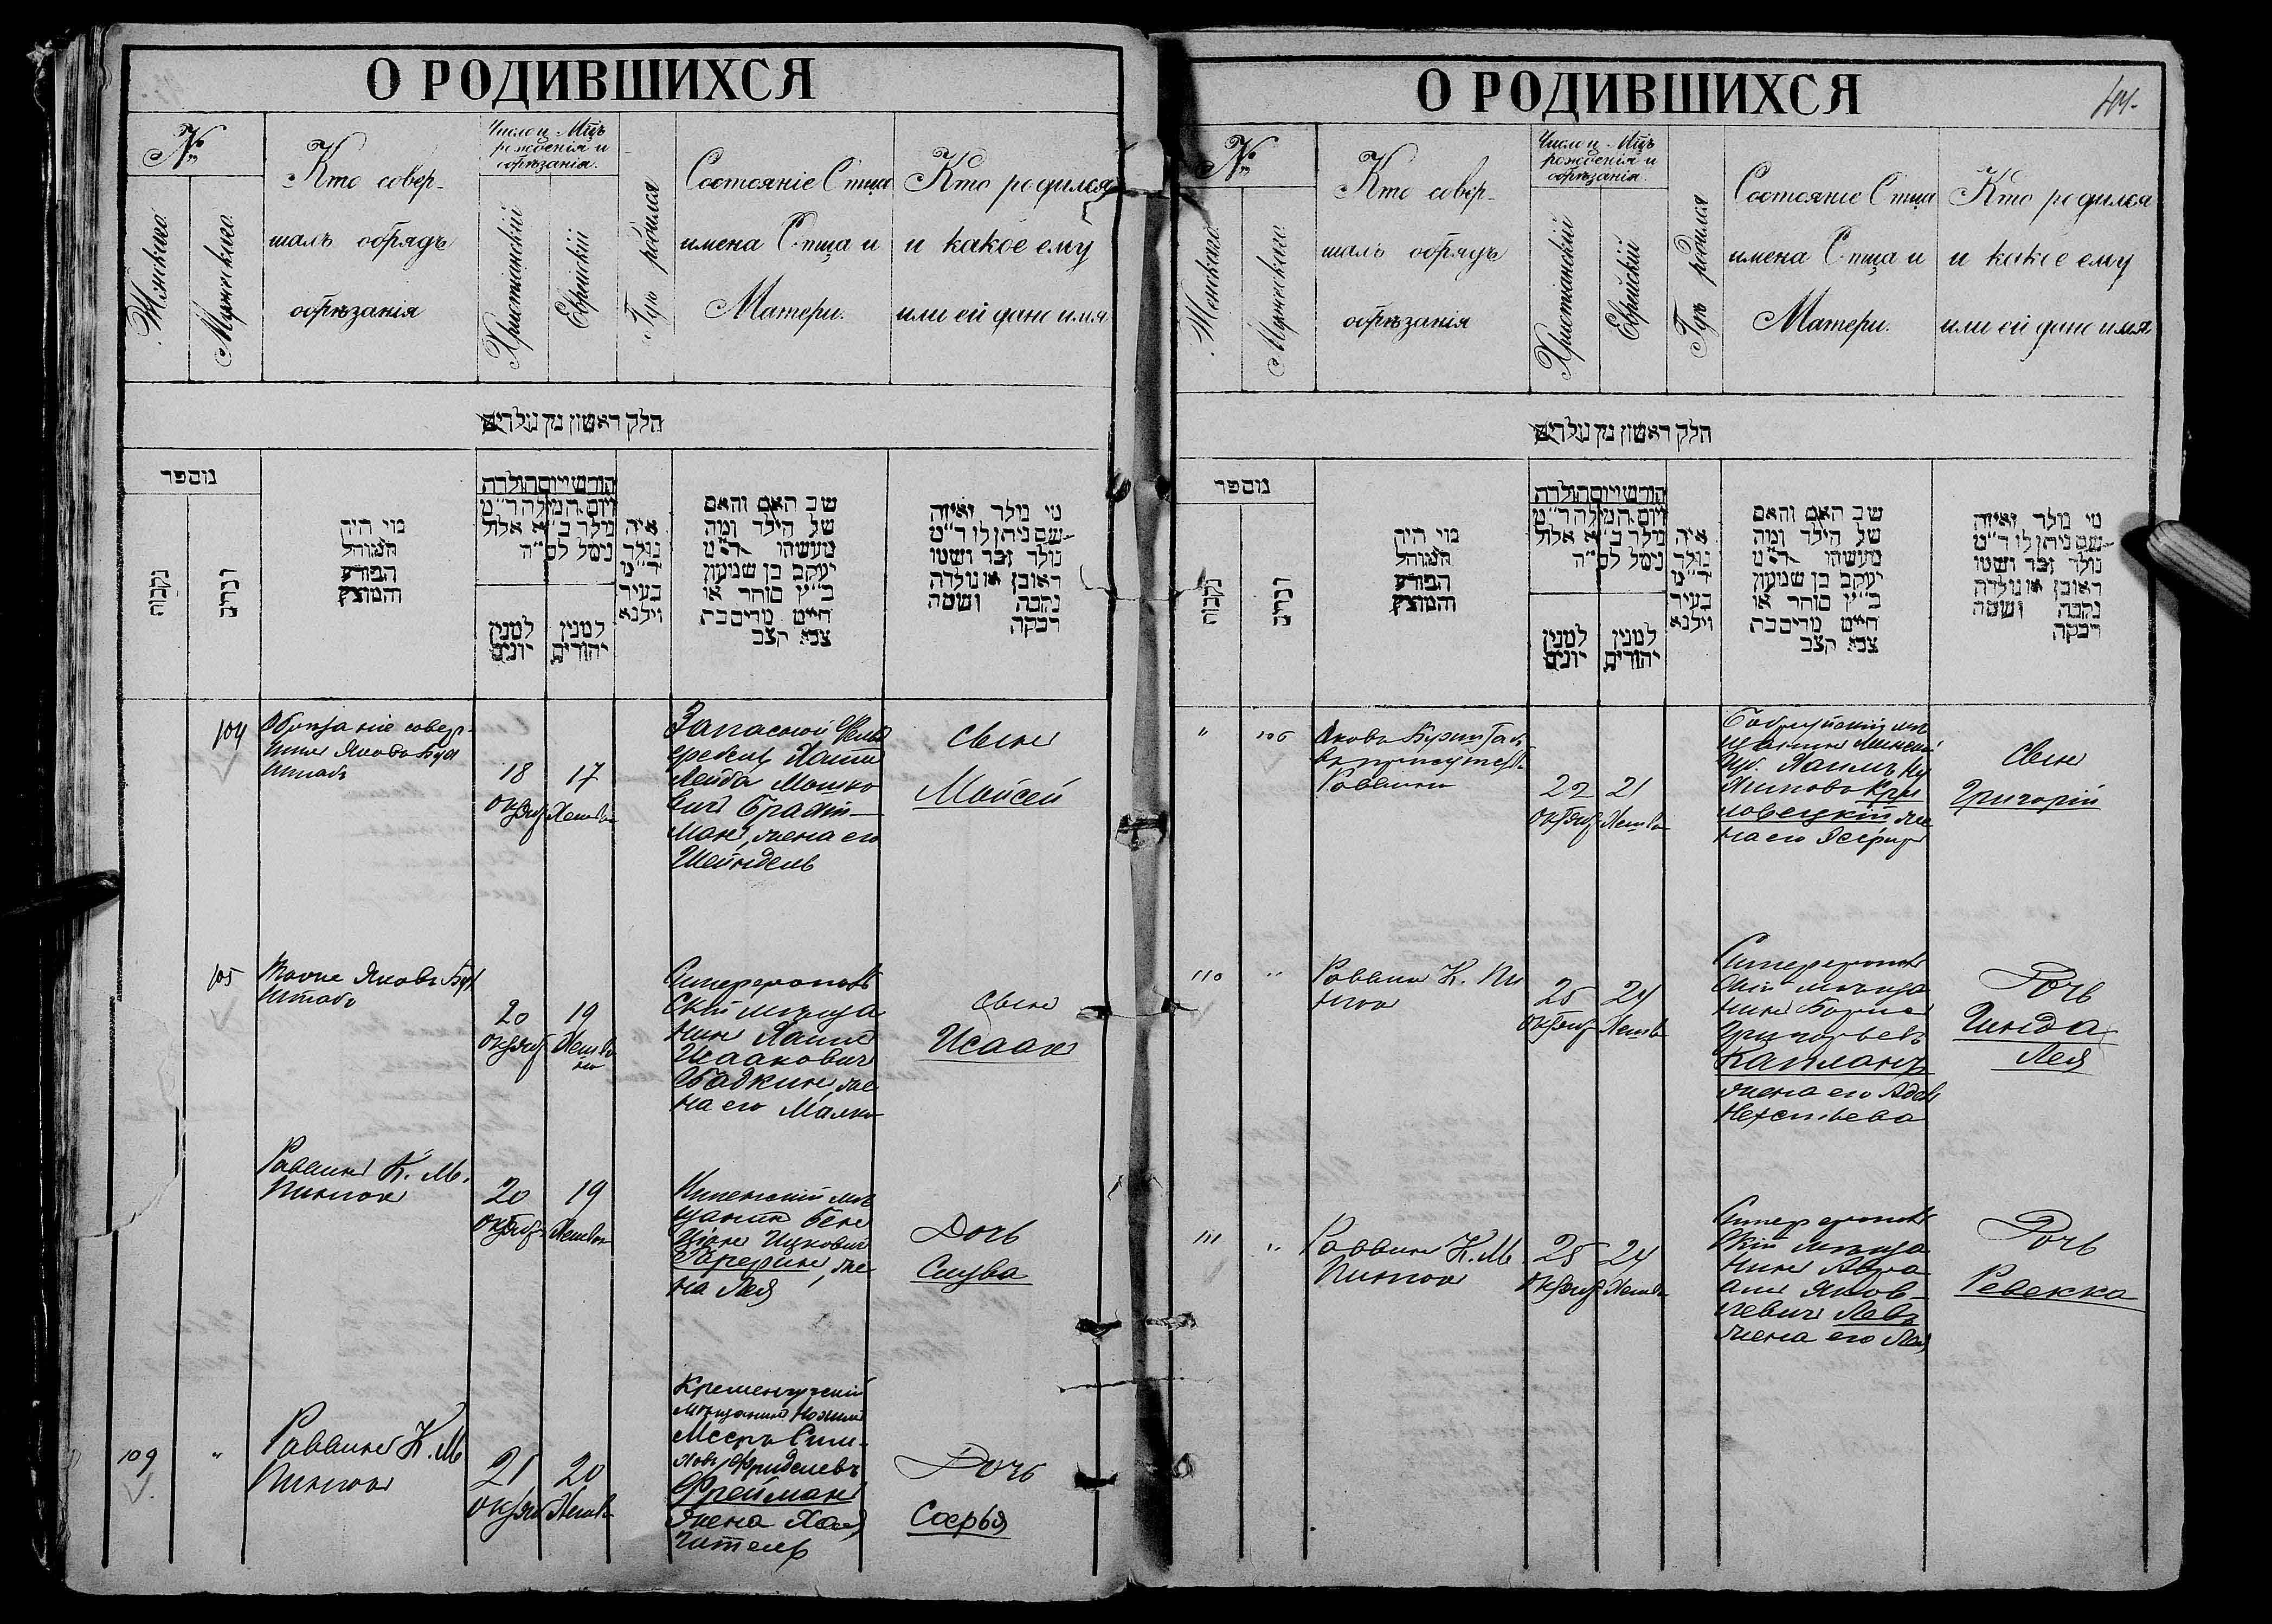 О РОДИВШИХСЯ
№
Женскаго
Мужескаго
Кто совер-
шалъ обрядъ
обрѣзанія
Число и Мцъ
рожденія и
обрѣзанія.
Христіанскій
Еврейскій
Гдѣ родился
Состояніе Отца
имена Отца и
Матери.
Кто родился
и какое ему
или ей дано имя
חלק ראשון מן נולדים
מספר
נקבה
זכרים
מי היה
המוהל
הפורע
והמוצץ
חודש ויום הולדה
ויום המילה ד״מ
נולד ב״א אלול
נימל לס״ה
למנין
יונים
למנין
יהודים
איה
נולד
ד״מ
בעיר
וילנא
שב האם והאם
של הילד ומה
מעשהו ד״מ
יעקב בן שמעון
ב״ץ סוחר או
חייט מרים בת
צבא קצב
מי נולד ואיזה
שם ניתן לו ד״מ
נולד זכר ושמו
ראובן או נולדה
נקבה ושמה
רבקה
104
Обрѣзаніе совер-
шил Яковъ Бур
штабъ
18
Октяб
17
Хешва
Запасной
Хаим
Лейба Мошко
вич Брахт-
ман, жена его
Шейндель
Сынъ
Мойсей
105
Тоже Яковъ Бур
штабъ
20
Октяб
19
Хешва
Симферополь
скій мѣща
нин Хаим
Исаакович
Бадкин, же
на его Малка
Сынъ
Исаакъ
Раввинъ К. М.
Пинчок
20
Октяб
19
Хешва
мѣ
щанин Бен
ціон Ицкович
же
на Лея
Дочь
Слува
109
"
Раввинъ К. М
Пинчок
21
Октяб
20
Хешва
Кременчугскій
мѣщанин
Меер Сим-
Фридлевъ
Фрейман
жена Хая
Гитель
Дочь
Софья
О РОДИВШИХСЯ
44.
№
Женскаго
Мужескаго
Кто совер-
шалъ обрядъ
обрѣзанія
Число и Мцъ
рожденія и
обрѣзанія.
Христіанскій
Еврейскій
Гдѣ родился
Состояніе Отца
имена Отца и
Матери.
Кто родился
и какое ему
или ей дано имя
חלק ראשון מן נולדים
מספר
נקבה
זכרים
מי היה
המוהל
הפורע
והמוצץ
חודש ויום הולדה
ויום המילה ד״מ
נולד ב״א אלול
נימל לס״ה
למנין
יונים
למנין
יהודים
איה
נולד
ד״מ
בעיר
וילנא
שב האם והאם
של הילד ומה
מעשהו ד״מ
יעקב בן שמעון
ב״ץ סוחר או
חייט מרים בת
צבא קצב
מי נולד ואיזה
שם ניתן לו ד״מ
נולד זכר ושמו
ראובן או נולדה
נקבה ושמה
רבקה
"
106
Яковъ Бурштабъ
в присутст.
Раввина
22
Октяб
21
Хешва
Бобруйскій мѣ
щанин Минской
губ. Хаимъ Ну
химовъ Кры
ловецкій же
на его Эсфирь
Сынъ
Григорій
110
"
Раввинъ К. Пи
нчок
25
Октяб
24
Хешва
Симферополь
скій мѣща
нин Борис
Григорьев
Капланъ
жена его Адель
Дочь
Гинда
Лея
111
"
Раввинъ К. М
Пинчок
25
Октяб
24
Хешва
Симферополь
скій мѣща
нин Авра
ам Яков-
левич Левъ
жена его Лея
Дочь
Ревекка